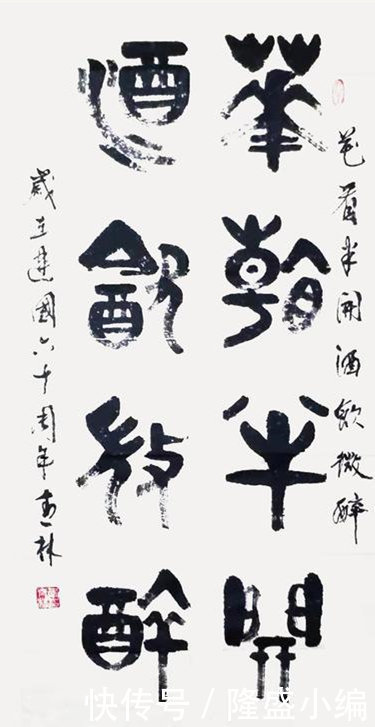 花看半開酒飲微醉
華看半開
酒飲微醉
歲在建國六十周年林
快传号 / 隆盛小编